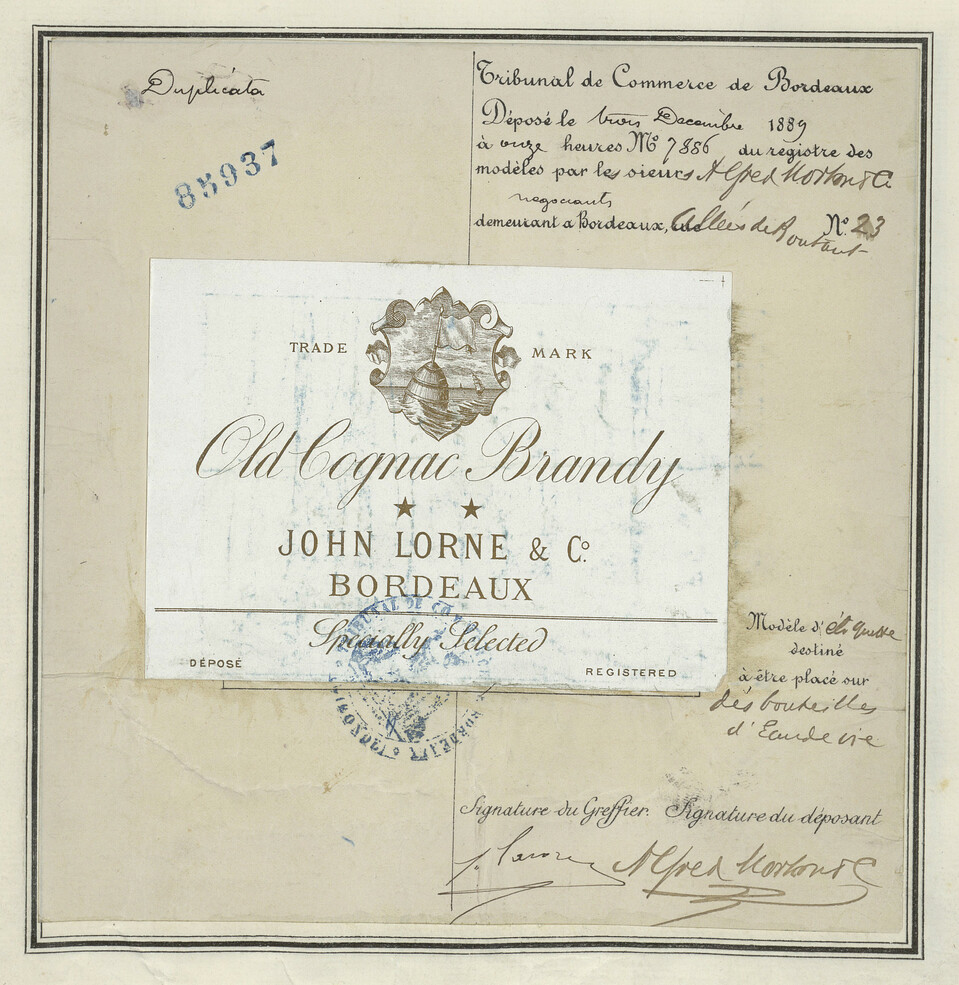 Duplicata
85937
Tribunal de Commerce de Bordeaux
Déposé le trois Decembre 1889
à onze heures No 7886 du registre des
modèles par les sieurs Alfred Morton & C.
negociants
demeurant a Bordeaux, Allées de Boutaut No. 23
TRADE MARK
Old Cognac Brandy
JOHN LORNE & Co.
BORDEAUX
Specially Selected
DÉPOSÉ
REGISTERED
TRIBUNAL DE COMMERCE BORDEAUX
Modèle d'étiquette
destiné
à être placé sur
des bouteilles
d'Eau de vie
Signature du Greffier. Signature du déposant
Alfred Morton & C